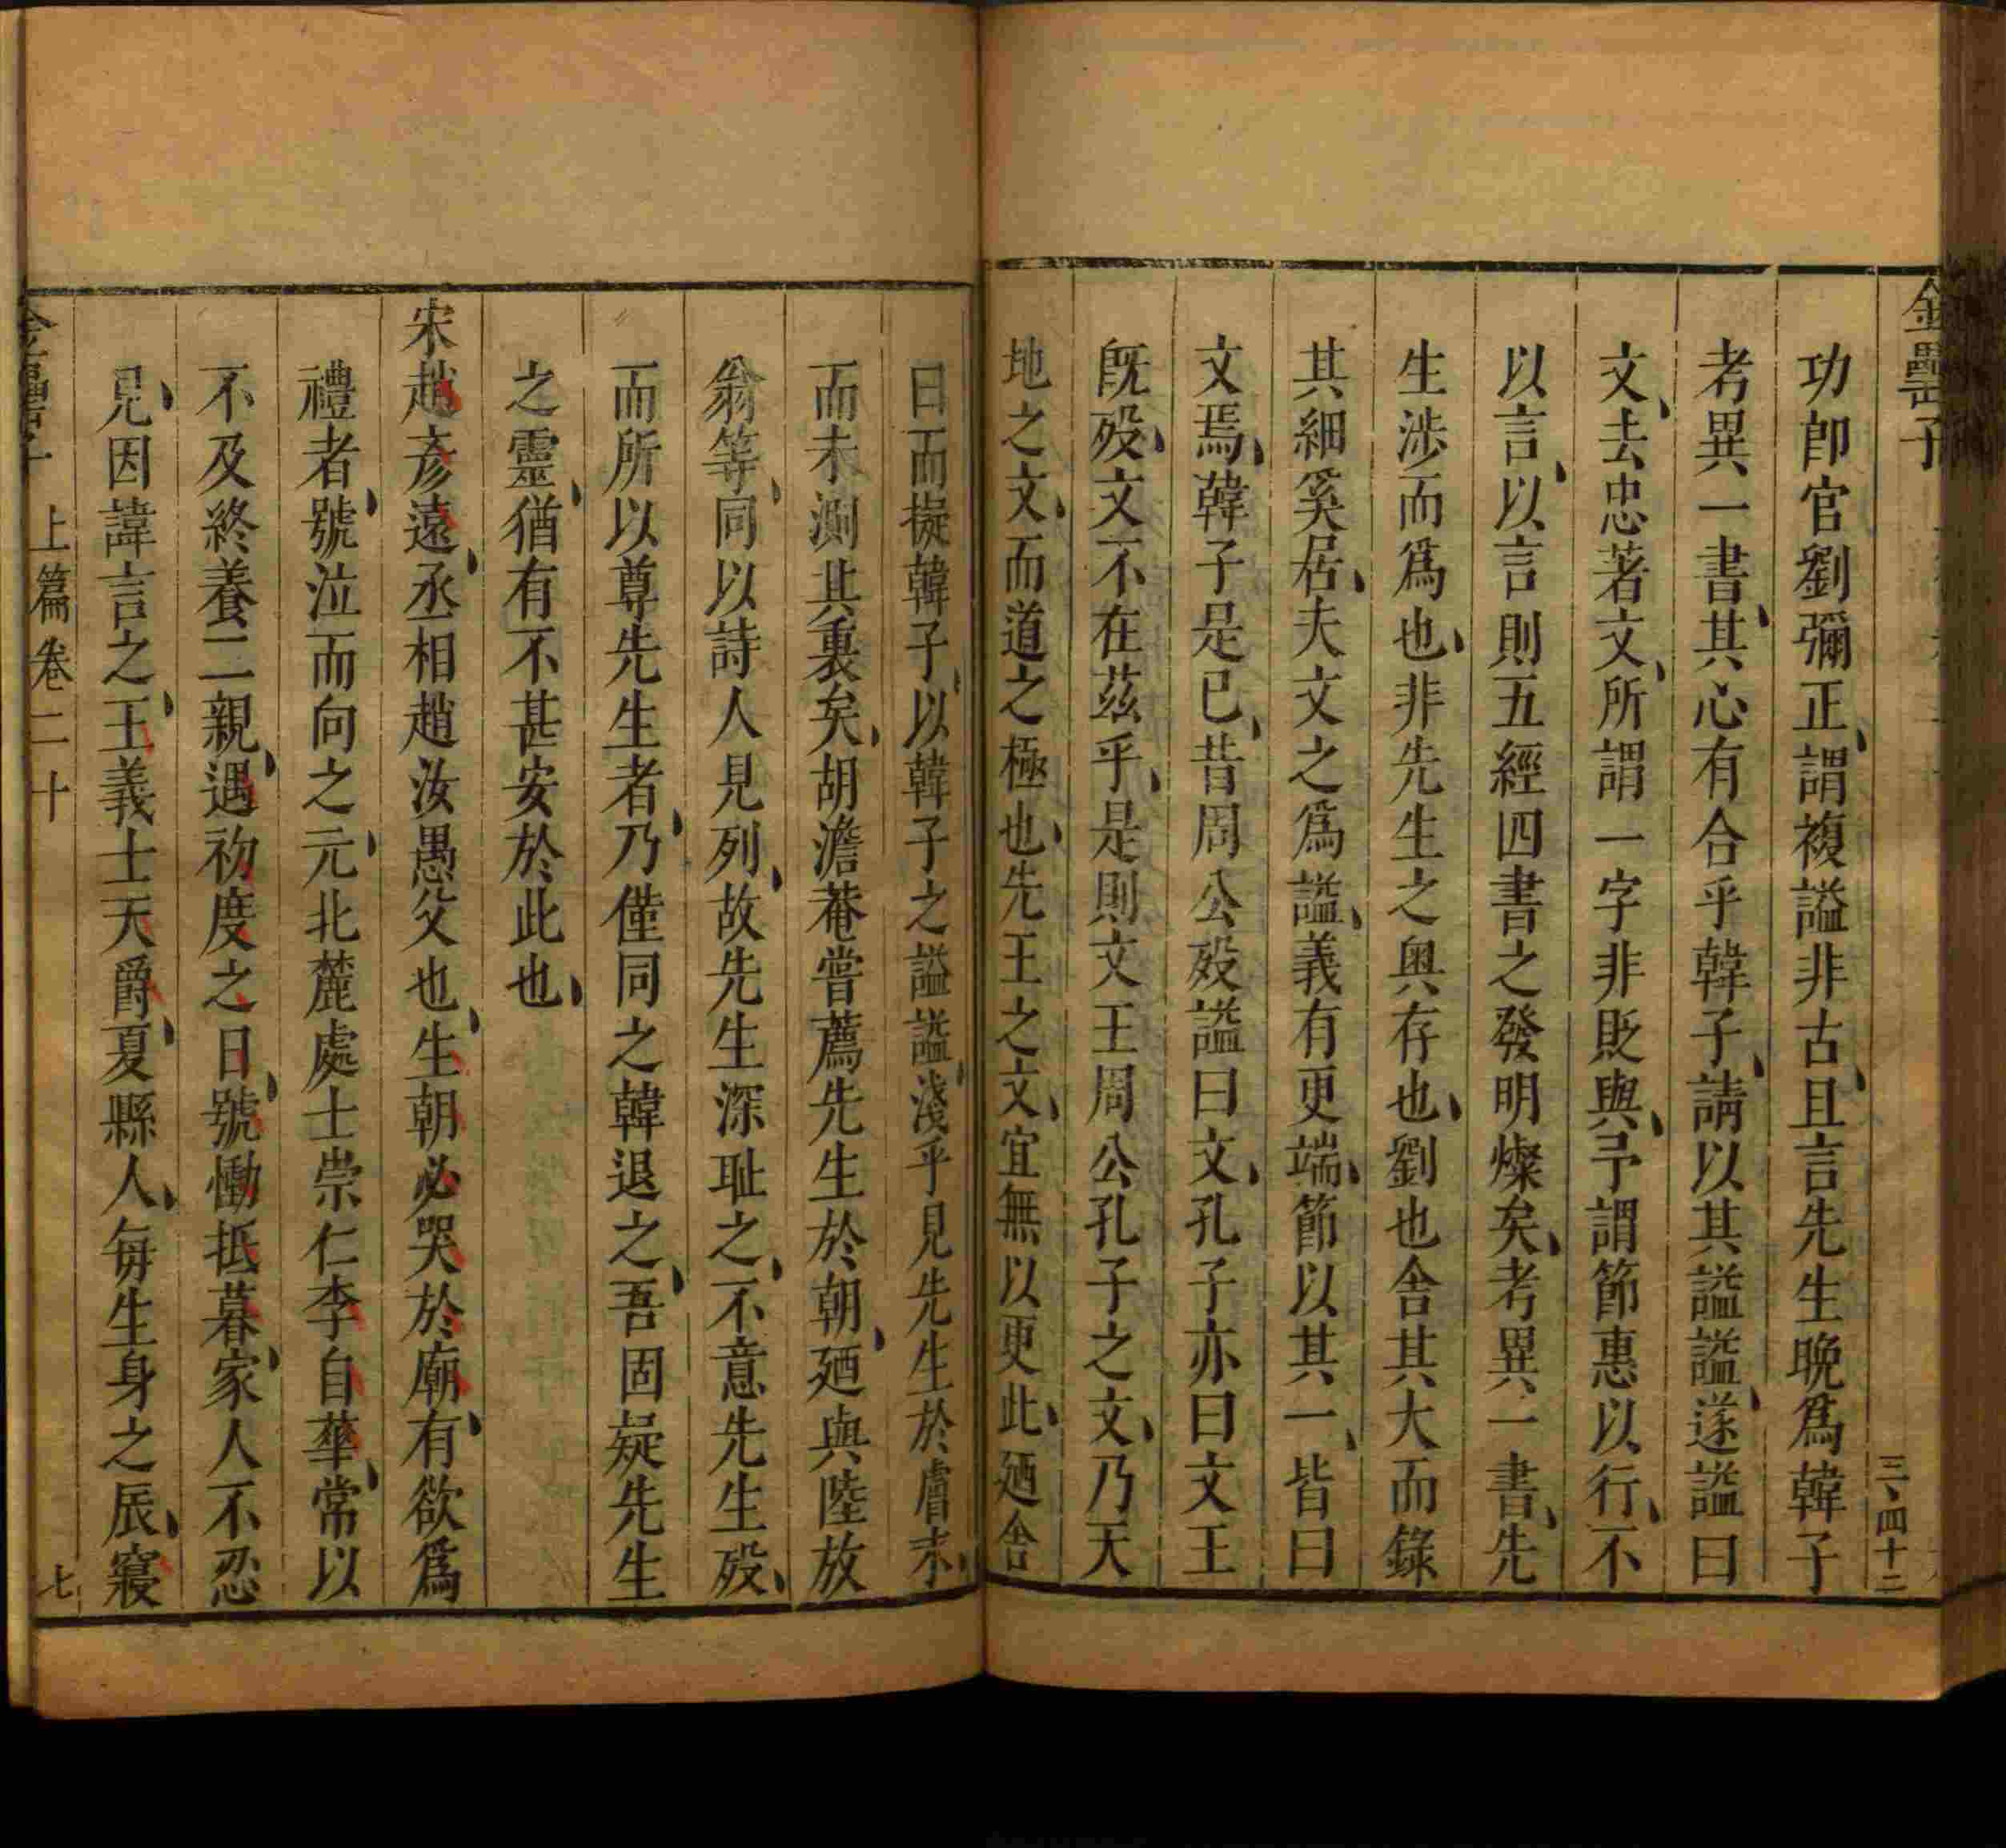 金罍子
三、四十二
功郎官劉彌正、謂複謚非古、且言先生晚爲韓子
考異一書、其心有合乎韓子、請以其謚謚、遂謚曰
文、去忠著文、所謂一字非貶與、予謂節惠以行、不
以言、以言則五經四書之發明燦矣、考異一書、先
生涉而爲也、非先生之奥存也、劉也舍其大而錄
其細奚居、夫文之爲謚、義有更端、節以其一、皆曰
文焉、韓子是已、昔周公殁謚曰文、孔子亦曰文王
旣殁、文不在茲乎、是則文王周公孔子之文、乃天
地之文、而道之極也、先王之文、宜無以更此、廼舍
曰而擬韓子、以韓子之謚謚、淺乎見先生於膚末、
而未測其裏矣、胡澹菴嘗薦先生於朝、廼與陸放
翁等、同以詩人見列、故先生深耻之、不意先生殁、
而所以尊先生者、乃僅同之韓退之、吾固疑先生
之靈、猶有不甚安於此也、
宋趙彥遠、丞相趙汝愚父也、生朝必哭於廟、有欲爲
禮者、號泣而向之、元北麓處士崇仁李自華、常以
不及終養二親、遇初度之日、號慟抵暮、家人不忍
見、因諱言之、王義士天爵、夏縣人、每生身之辰、寢
金罍子
上篇卷二十
七